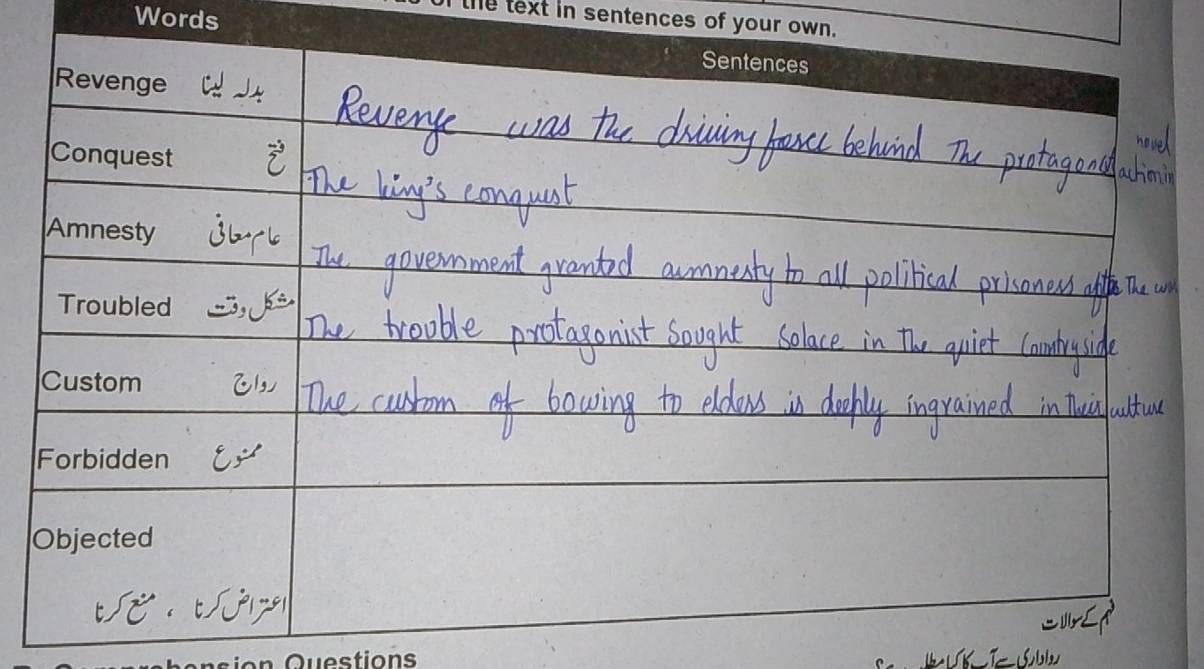 of the text in sentences of your own.
Words Sentences
Revenge بدلہ لینا Revenge was the driving force behind the protagonist action in novel
Conquest فتح The king's conquest
Amnesty عام معافی The government granted aumnesty to all political prisoners after the
Troubled مشکل وقت The trouble protagonist sought solace in the quiet Countryside
Custom رواج The custom of bowing to elders is deeply ingrained in their culture
Forbidden ممنوع
Objected
اعتراض کرنا ، منع کرنا
فہم کے سوالات
Comprehension Questions
رواداری سے آپ کا کیا